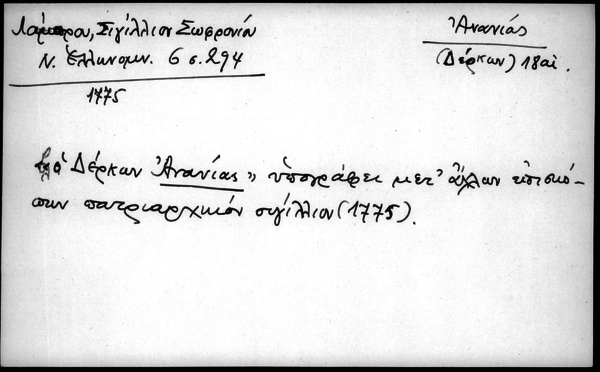 Λάμπρου, Σιγίλλιον Σωφρονίου
Ν. Ἑλληνομν. 6 σ. 294
1775
Ἀνανίας
(Δέρκων) 18 αἰ.
ὁ Δέρκων Ἀνανίας » ὑπογράφει μετ' ἄλλων ἐπισκό-
πων πατριαρχικόν σιγίλλιον (1775).